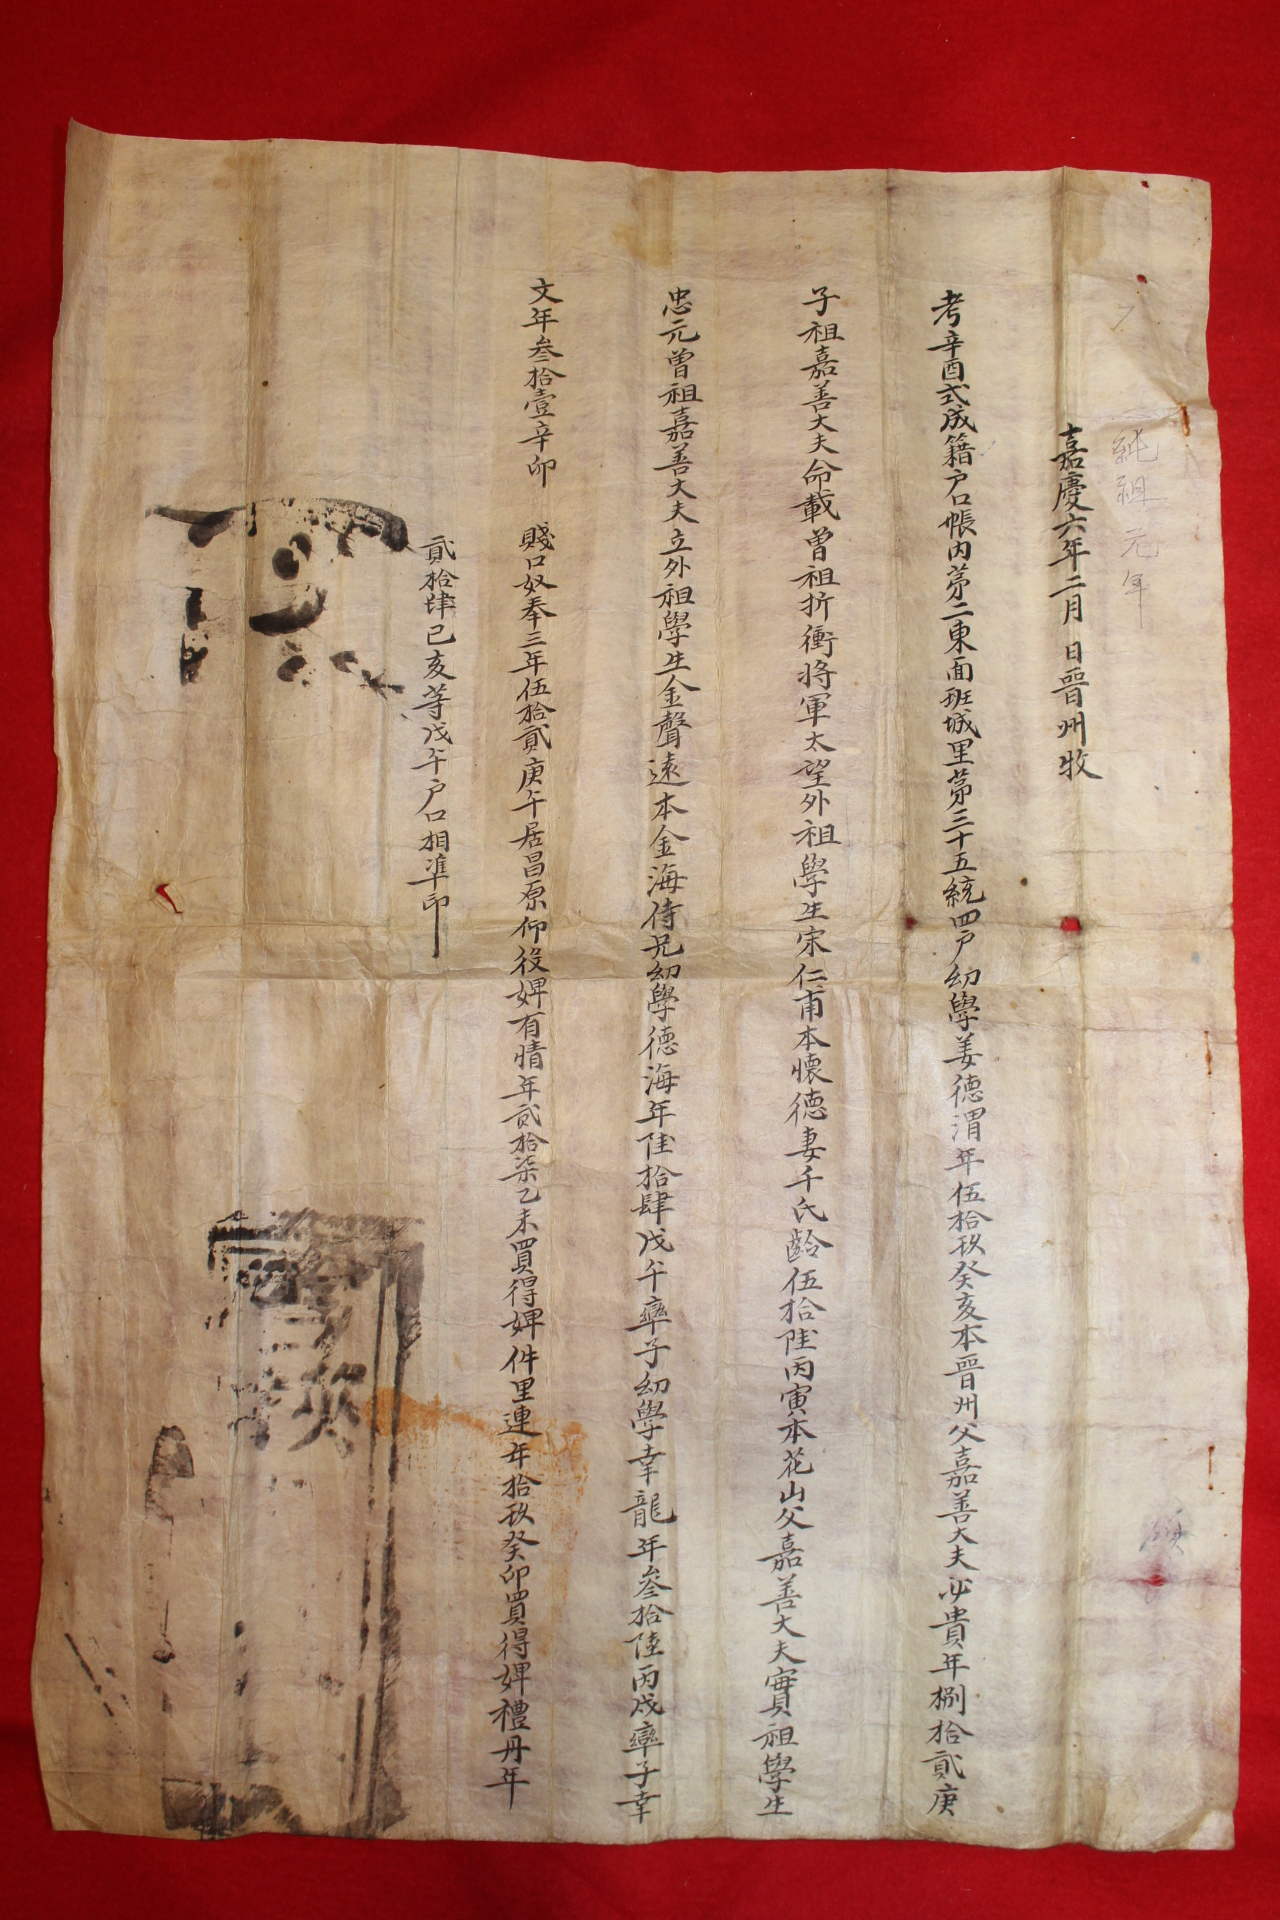 純祖元年
嘉慶六年二月 日晉州牧
考辛酉式成籍戶口帳內第二東面班城里第三十五統四戶幼學姜德渭年伍拾玖癸亥本晉州父嘉善大夫必貴年捌拾貳庚
子祖嘉善大夫命載曾祖折衝將軍太望外祖學生宋仁甫本懷德妻千氏齡伍拾陸丙寅本花山父嘉善大夫實祖學生
忠元曾祖嘉善大夫立外祖學生金聲遠本金海侍兄幼學德海年陸拾肆戊午率子幼學幸龍年叄拾陸丙戌率子幸
文年叄拾壹辛卯 賤口奴奉三年伍拾貳庚午居昌原仰役婢有情年貳拾柒乙未買得婢件里連年拾玖癸卯買得婢禮丹年
貳拾肆己亥等戊午戶口相準印